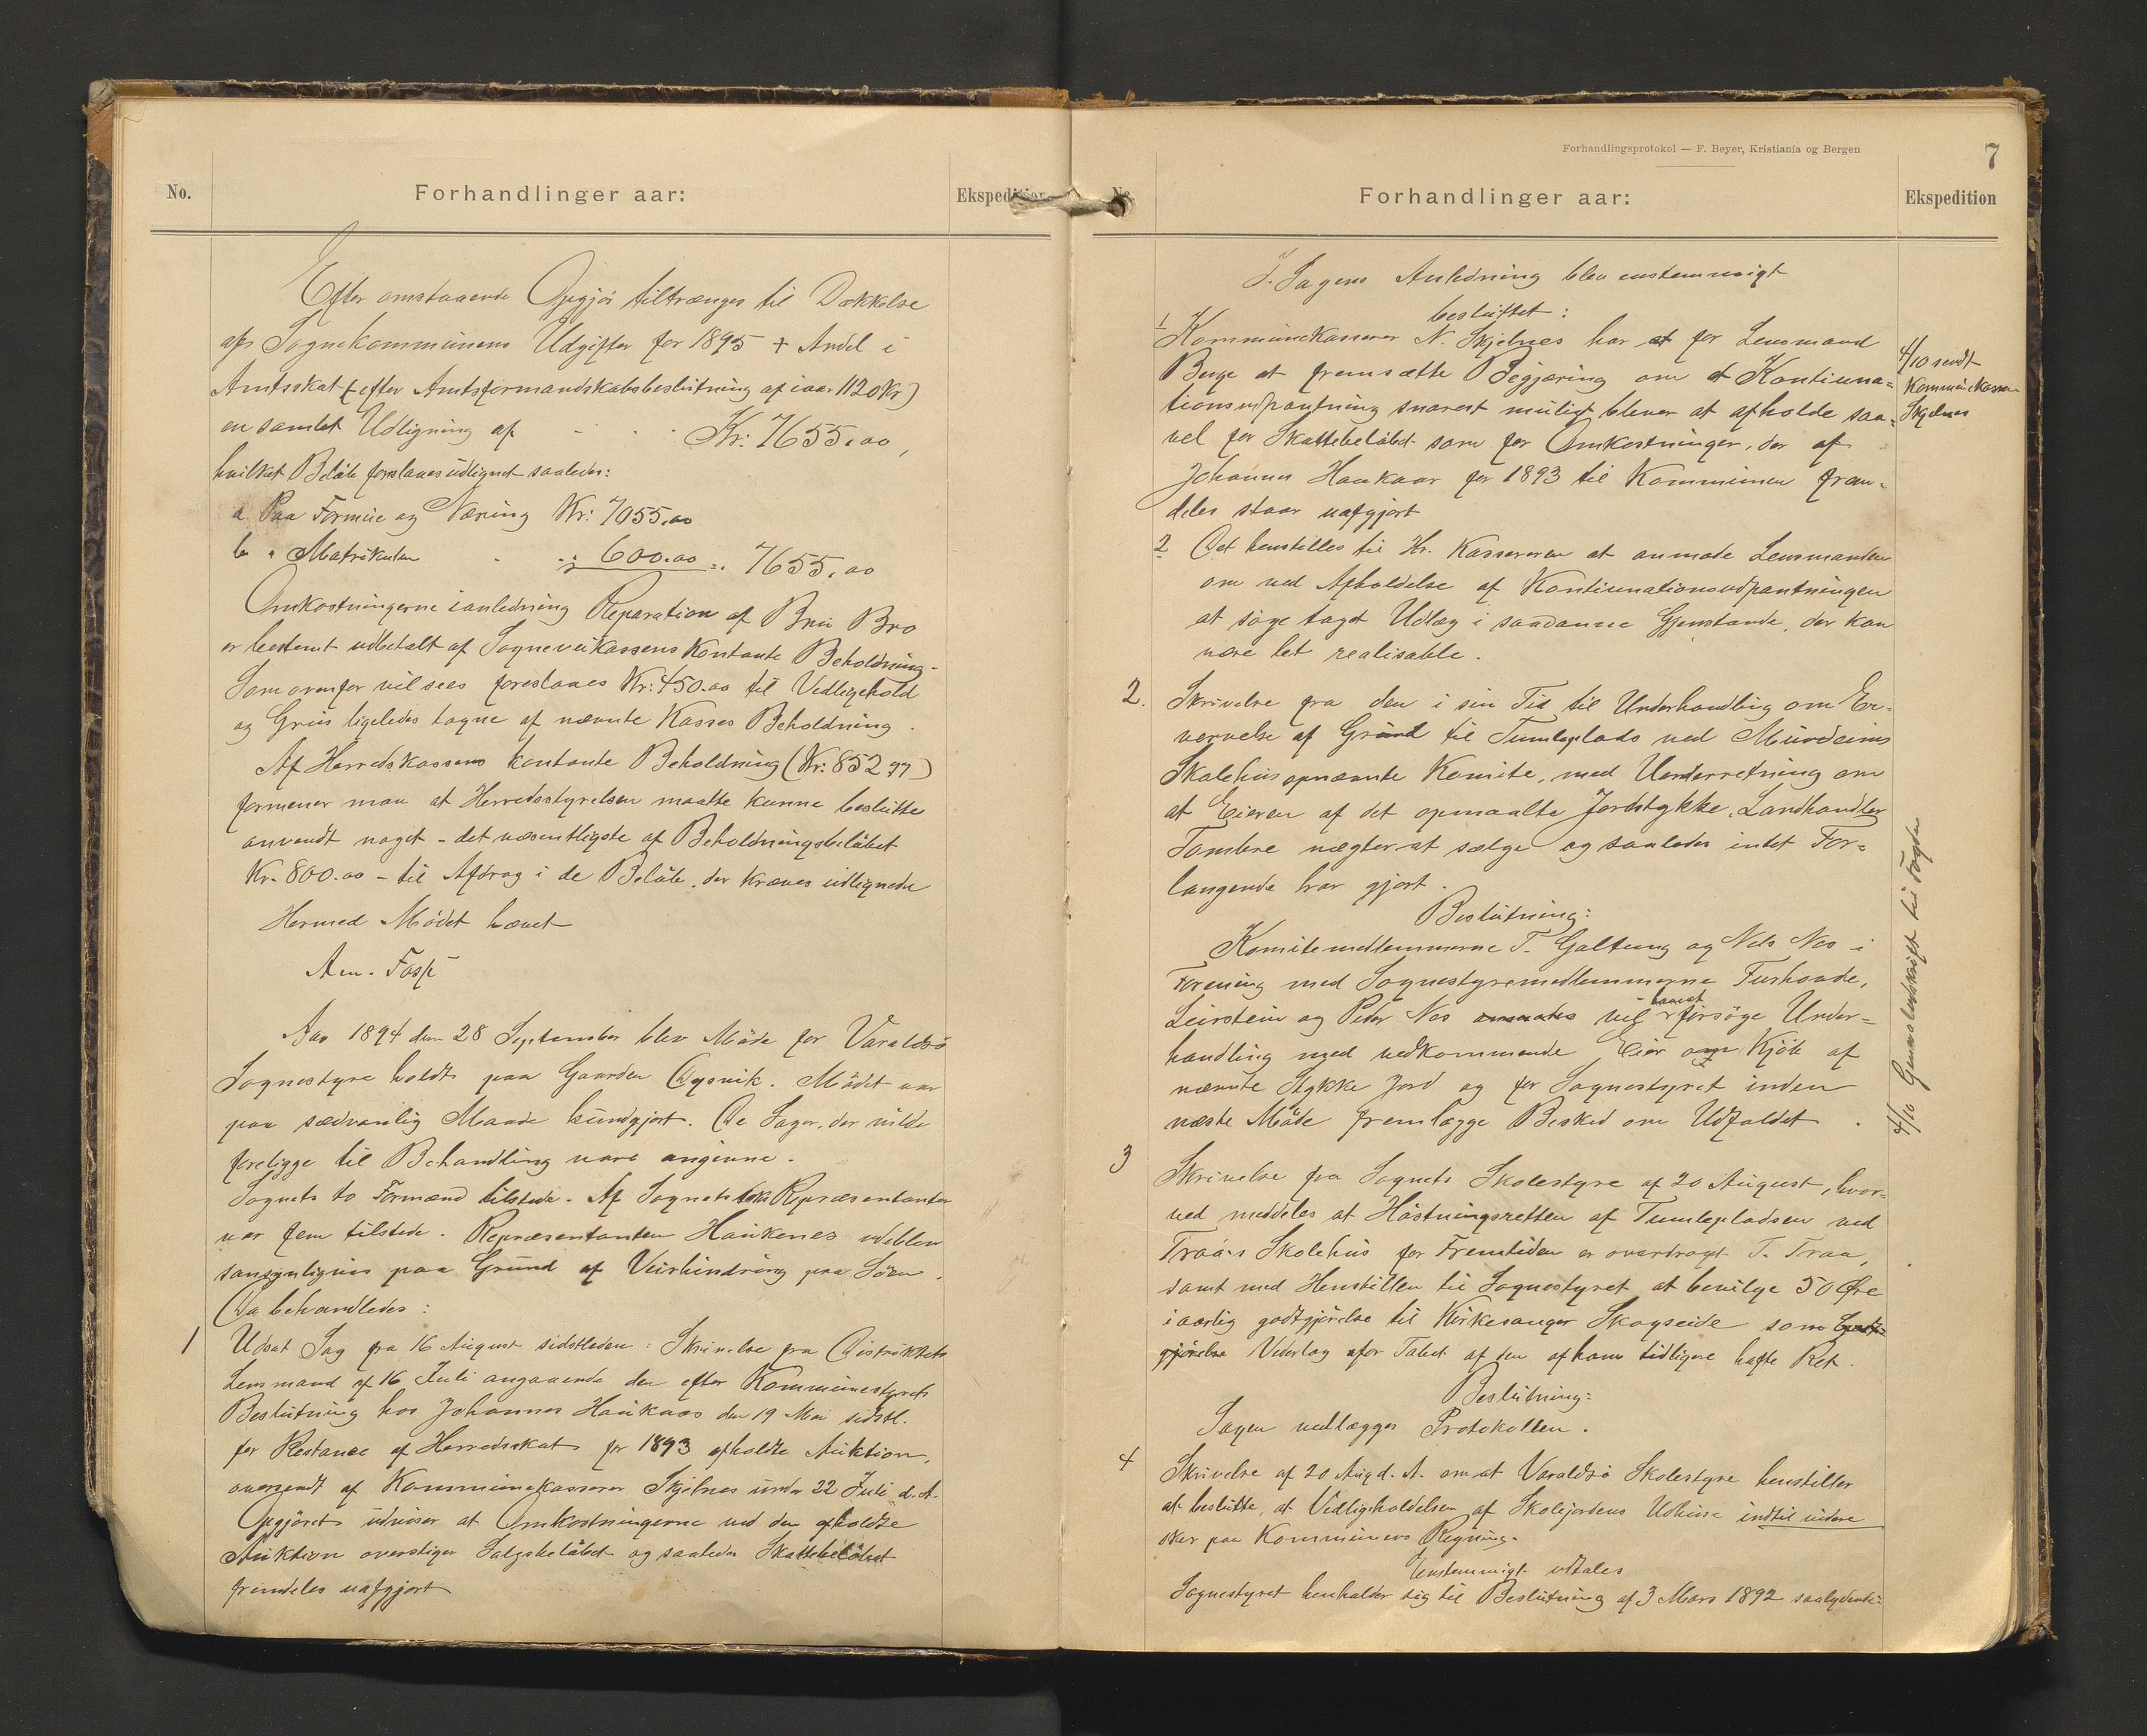 No.
Forhandlinger aar:
Ekspedition
Efter omstaaende Opgjör tiltrænges til Dækkelse
af Sognekommunens Udgifter for 1895 + Andel i
Amtsskat (efter Amtsformandskabsbeslutning af iaar 1120 Kr)
en samlet Udligning af - - - Kr: 7655,00,
hvilket Belöb foreslaaes udlignet saaledes:
a Paa Formue og Næring Kr: 7055,00
b " Matrikulen - " 600.00 = 7655,00
Omkostningerne ianledning Reparation af Bru Bro
er bestemt udbetalt af Sogneveikassens Kontante Beholdning.
Som ovenfor vil sees foreslaaes Kr: 450.00 til Vedligehold
og Grus ligeledes tagne af nævnte Kasses Beholdning.
Af Herredskassens kontante Beholdning (Kr: 852 77)
formener man at Herredsstyrelsen maatte kunne beslutte
anvendt noget - det væsentligste af Beholdningsbelöbet
Kr. 800.00 - til Afdrag i de Belöb, der kræves udlignede
Hermed Mödet hævet
Am. Fosse
Aar 1894 den 28 September blev Möde for Varaldsö
Sognestyre holdt paa Gaarden Øysvik. Mödet var
paa sædvanlig Maade kundgjort. De Sager, der vilde
foreligge til Behandling vare angivne.
Sognets to Formænd tilstede. Af Sognets seks Repræsentanter
var fem tilstede. Repræsentanten Haukenes udeblev
sansynligvis paa Grund af Veirhindring paa Söen.
Da behandledes:
1 Udsat Sag fra 16 August sidstleden: Skrivelse fra Distriktets
Lensmand af 16 Juli angaaende den efter Kommunestyrets
Beslutning hos Johannes Haukaas den 19 Mai sidstl.
for Restance af Herredsskat for 1893 afholdte Auktion,
oversendt af Kommunekasserer Skjelnes under 22 Juli d. A.
Opgjöret udviser at Omkostningerne ved den afholdte
Auktion overstiger Salgsbelöbet og saaledes Skattebelöbet
fremdeles uafgjort
Forhandlingsprotokol — F. Beyer, Kristiania og Bergen
7
No.
Forhandlinger aar:
Ekspedition
I Sagens Anledning blev enstemmigt
besluttet:
1 Kommunekasserer N. Skjelnes har at for Lensmand
Berge at fremsætte Begjæring om at Kontinua=
tionsudpantning snarest muligt bliver at afholde saa=
vel for Skattebelöbet som for Omkostninger, der af
Johannes Haukaas for 1893 til Kommunen frem=
deles staar uafgjort
4/10 sendt
Kommunekasserer
Skjelnes
2 Det henstilles til Hr. Kassereren at anmode Lensmanden
om ved Afholdelse af Kontinuationsudpantningen
at söge taget Udlæg i saadanne Gjenstande, der kan
være let realisable.
2. Skrivelse fra den i sin Tid til Underhandling om Er=
vervelse af Grund til Tumleplads ved Mundeims
Skolehus opnævnte Komite, med Underretning om
at Eieren af det opmaalte Jordstykke, Landhandler
Tombre nægter at sælge og saaledes intet For=
langende har gjort.
Beslutning:
Komitemedlemmerne T. Galtung og Nels Nes i
Forening med Sognestyremedlemmerne Turhovde,
Leirstein og Peder Nes anmodes vil have at forsöge Under=
handling med vedkommende Eier om Kjöb af
nævnte Stykke Jord og for Sognestyret inden
næste Möde fremlægge Besked om Udfaldet.
4/10 Genudskrift til Fosse
3 Skrivelse fra Sognets Skolestyre af 20 August, hvor=
ved meddeles at Höstningsretten af Tumlepladsen ved
Traa's Skolehus for Fremtiden er overdraget T. Traa,
samt med Henstillen til Sognestyret at bevilge 50 Øre
i aarlig godtgjörelse til Kirkesanger Skogseide som Godt=
gjörelse Vederlag for Tabet af den af ham tidligere hafte Ret.
Beslutning:
Sagen vedlægges Protokollen.
4 Skrivelse af 20 Aug d. A. om at Varaldsö Skolestyre henstiller
at beslutte, at Vedligeholdelsen af Skolejordens Udhuse indtil videre
sker paa Kommunens Regning.
Enstemmigt udtales
Sognestyret henholder sig til Beslutning af 3 Mars 1892 saalydende: